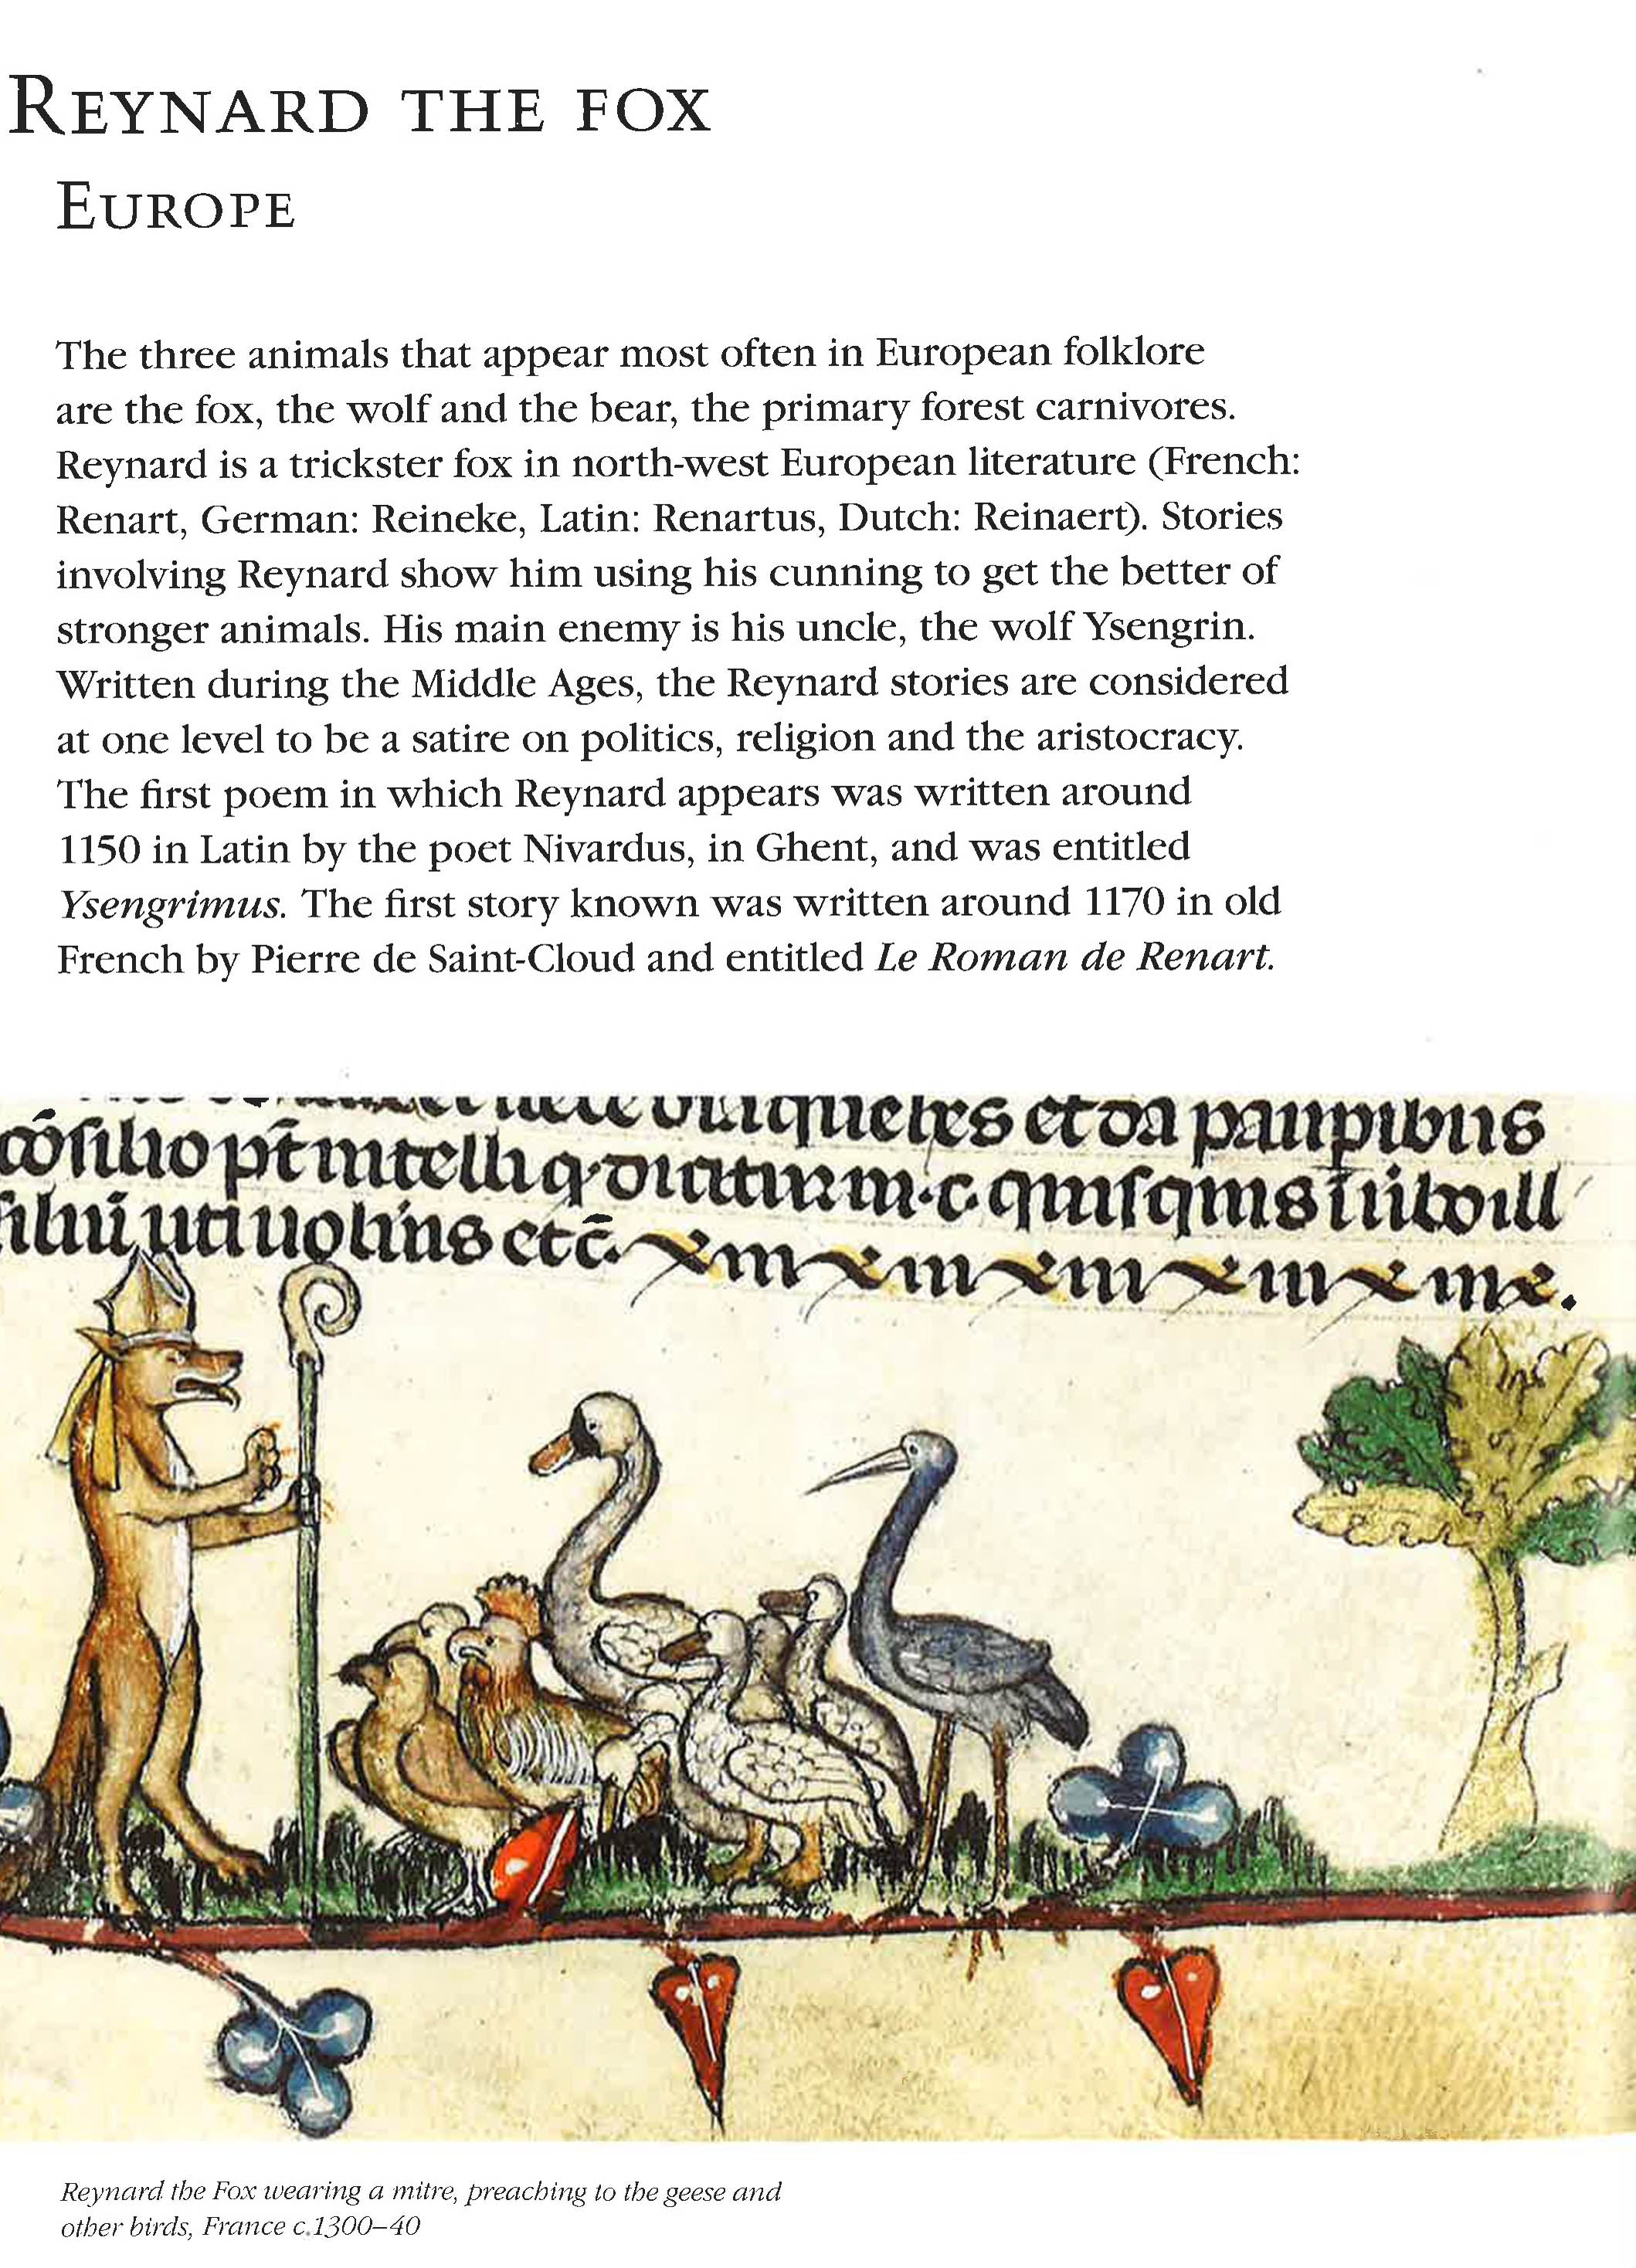 REYNARD THE FOX
EUROPE
The three animals that appear most often in European folklore
are the fox, the wolf and the bear, the primary forest carnivores.
Reynard is a trickster fox in north-west European literature (French:
Renart, German: Reineke, Latin: Renartus, Dutch: Reinaert). Stories
involving Reynard show him using his cunning to get the better of
stronger animals. His main enemy is his uncle, the wolf Ysengrin.
Written during the Middle Ages, the Reynard stories are considered
at one level to be a satire on politics, religion and the aristocracy.
The first poem in which Reynard appears was written around
1150 in Latin by the poet Nivardus, in Ghent, and was entitled
Ysengrimus. The first story known was written around 1170 in old
French by Pierre de Saint-Cloud and entitled Le Roman de Renart.
Reynard the Fox wearing a mitre, preaching to the geese and
other birds, France c.1300–40